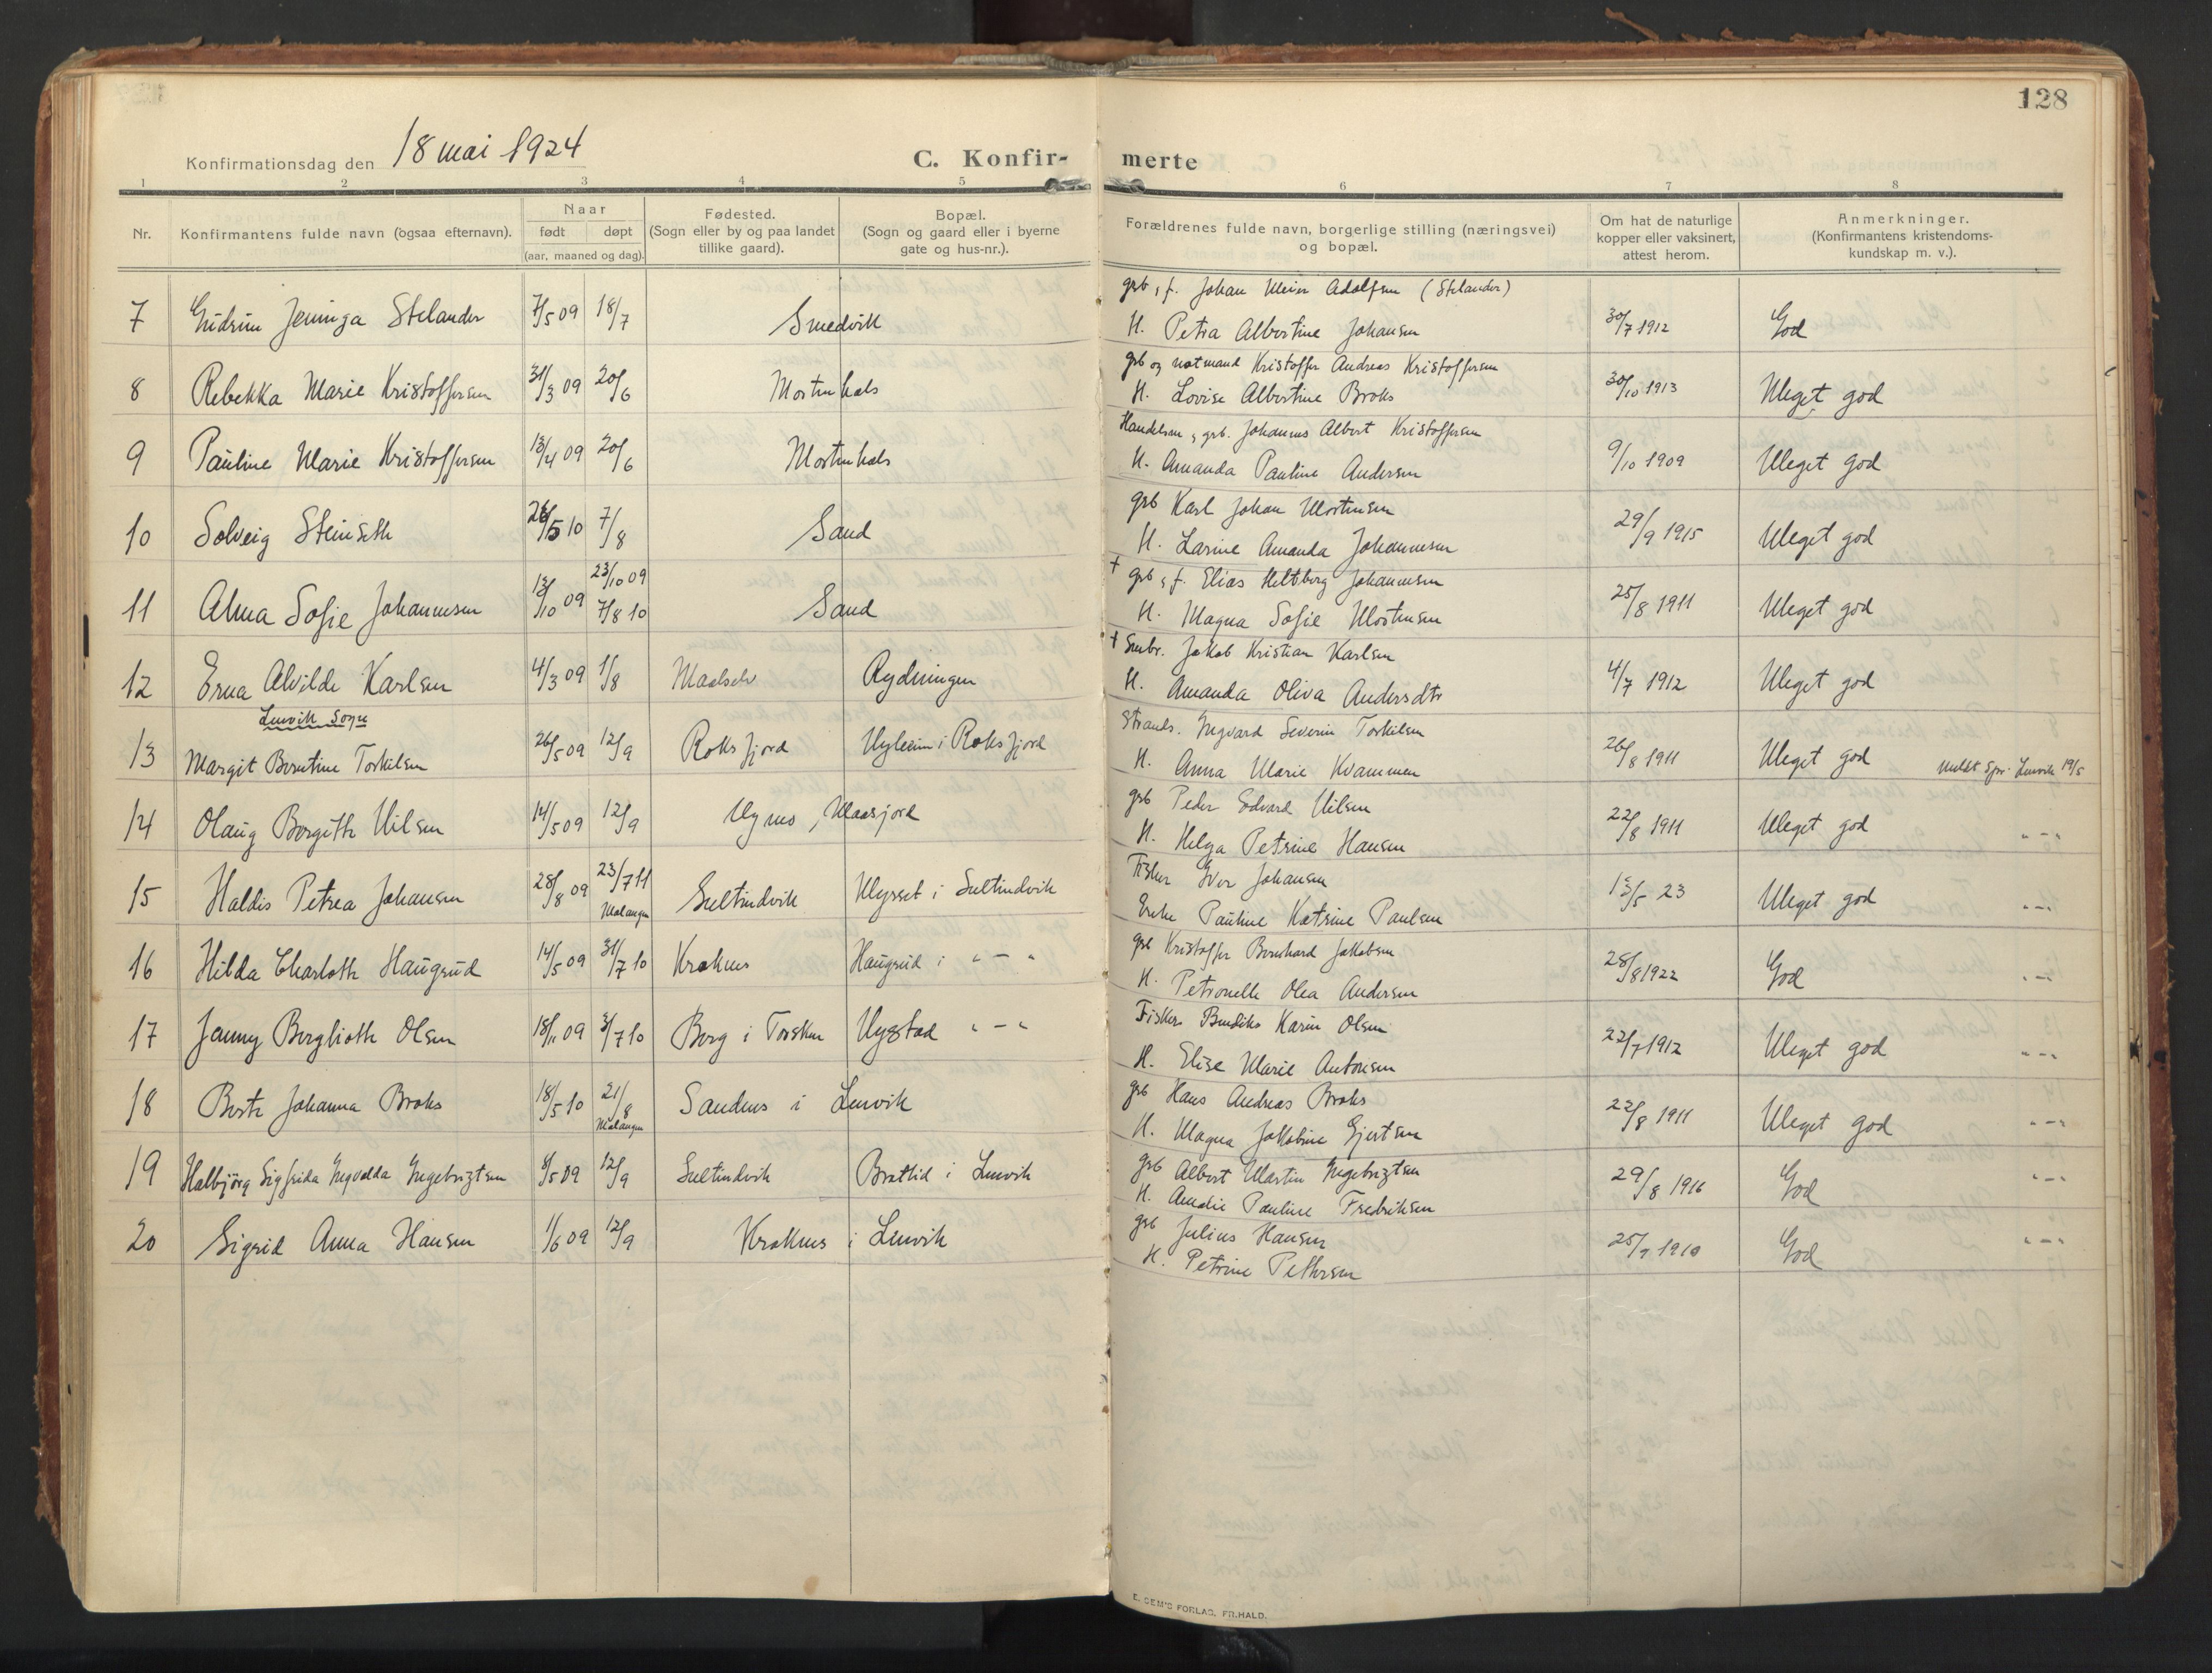 128
Konfirmationsdag den 18 mai 1924
C. Konfir- merte
1 2 3 4 5 6 7 8
Nr. Konfirmantens fulde navn (ogsaa efternavn). Naar født døpt (aar, maaned og dag). Fødested. (Sogn eller by og paa landet tillike gaard). Bopæl. (Sogn og gaard eller i byerne gate og hus-nr.). Forældrenes fulde navn, borgerlige stilling (næringsvei) og bopæl. Om hat de naturlige kopper eller vaksinert, attest herom. Anmerkninger. (Konfirmantens kristendoms- kundskap m. v.).
grb, f. Johan Meier Adolfsen (Stelander)
7 Gudrun Jenniga Stelander 7/5 09 18/7 Smedvik H. Petra Albertine Johansen 30/7 1912 God
grb og notmand Kristoffer Andreas Kristoffersen
8 Rebekka Marie Kristoffersen 31/3 09 20/6 Mortenhals H. Lovise Albertine Broks 30/10 1913 Meget god
Handelsm, grb. Johannes Albert Kristoffersen
9 Pauline Marie Kristoffersen 13/4 09 20/6 Mortenhals H. Amanda Pauline Andersen 9/10 1909 Meget god
grb Karl Johan Mortensen
10 Solveig Steinseth 26/5 10 7/8 Sand H. Larine Amanda Johannesen 29/9 1915 Meget god
† grb, f. Elias Heltberg Johannesen
11 Alma Sofie Johannesen 13/10 09 23/10 09 7/8 10 Sand H. Magna Sofie Mortensen 25/8 1911 Meget god
† Smbr. Jakob Kristian Karlsen
12 Erna Alvilde Karlsen 4/3 09 1/8 Maalselv Rydningen H. Amanda Oliva Andersdtr 4/7 1912 Meget god
Lenvik Sogn
Strands. Ingvard Severin Torkilsen
13 Margit Berntine Torkilsen 26/5 09 12/9 Roksfjord Nyheim i Roksfjord H. Anna Marie Kvammen 26/8 1911 Meget god Meldt Spr. Lenvik 19/5
grb Peder Edvard Nilsen
14 Olaug Bergith Nilsen 14/5 09 12/9 Nymo, Maasjord H. Helga Petrine Hansen 22/8 1911 Meget god " - "
Fisker Iver Johansen
15 Haldis Petrea Johansen 28/8 09 23/7 11 Malangen Sultindvik Nyset i Sultindvik Enke Pauline Katrine Paulsen 13/5 23 Meget god " - "
grb Kristoffer Bernhard Jakobsen
16 Hilda Charloth Haugrud 14/5 09 31/7 10 Kraknes Haugrud i " - " H. Petronelle Olea Andersen 28/8 1922 God " - "
Fisker Bendiks Karin Olsen
17 Jenny Berglioth Olsen 18/11 09 3/7 10 Berg i Torsken Nystad " - " H. Elise Marie Antonsen 22/7 1912 Meget god " - "
grb Hans Andreas Broks
18 Berte Johanna Broks 18/5 10 21/8 Malangen Sandnes i Lenvik H. Magna Jakobine Gjertsen 22/8 1911 Meget god " - "
grb Albert Martin Ingebrigtsen
19 Halbjörg Sigfrida Ingvalda Ingebrigtsen 8/5 09 12/9 Sultindvik Bratlid i Lenvik H. Amalie Pauline Fredriksen 29/8 1916 God " - "
grb Julius Hansen
20 Sigrid Anna Hansen 1/6 09 12/9 Kraknes i Lenvik H. Petrine Pettersen 25/9 1910 God " - "
E. SEM'S FORLAG. FR.HALD.